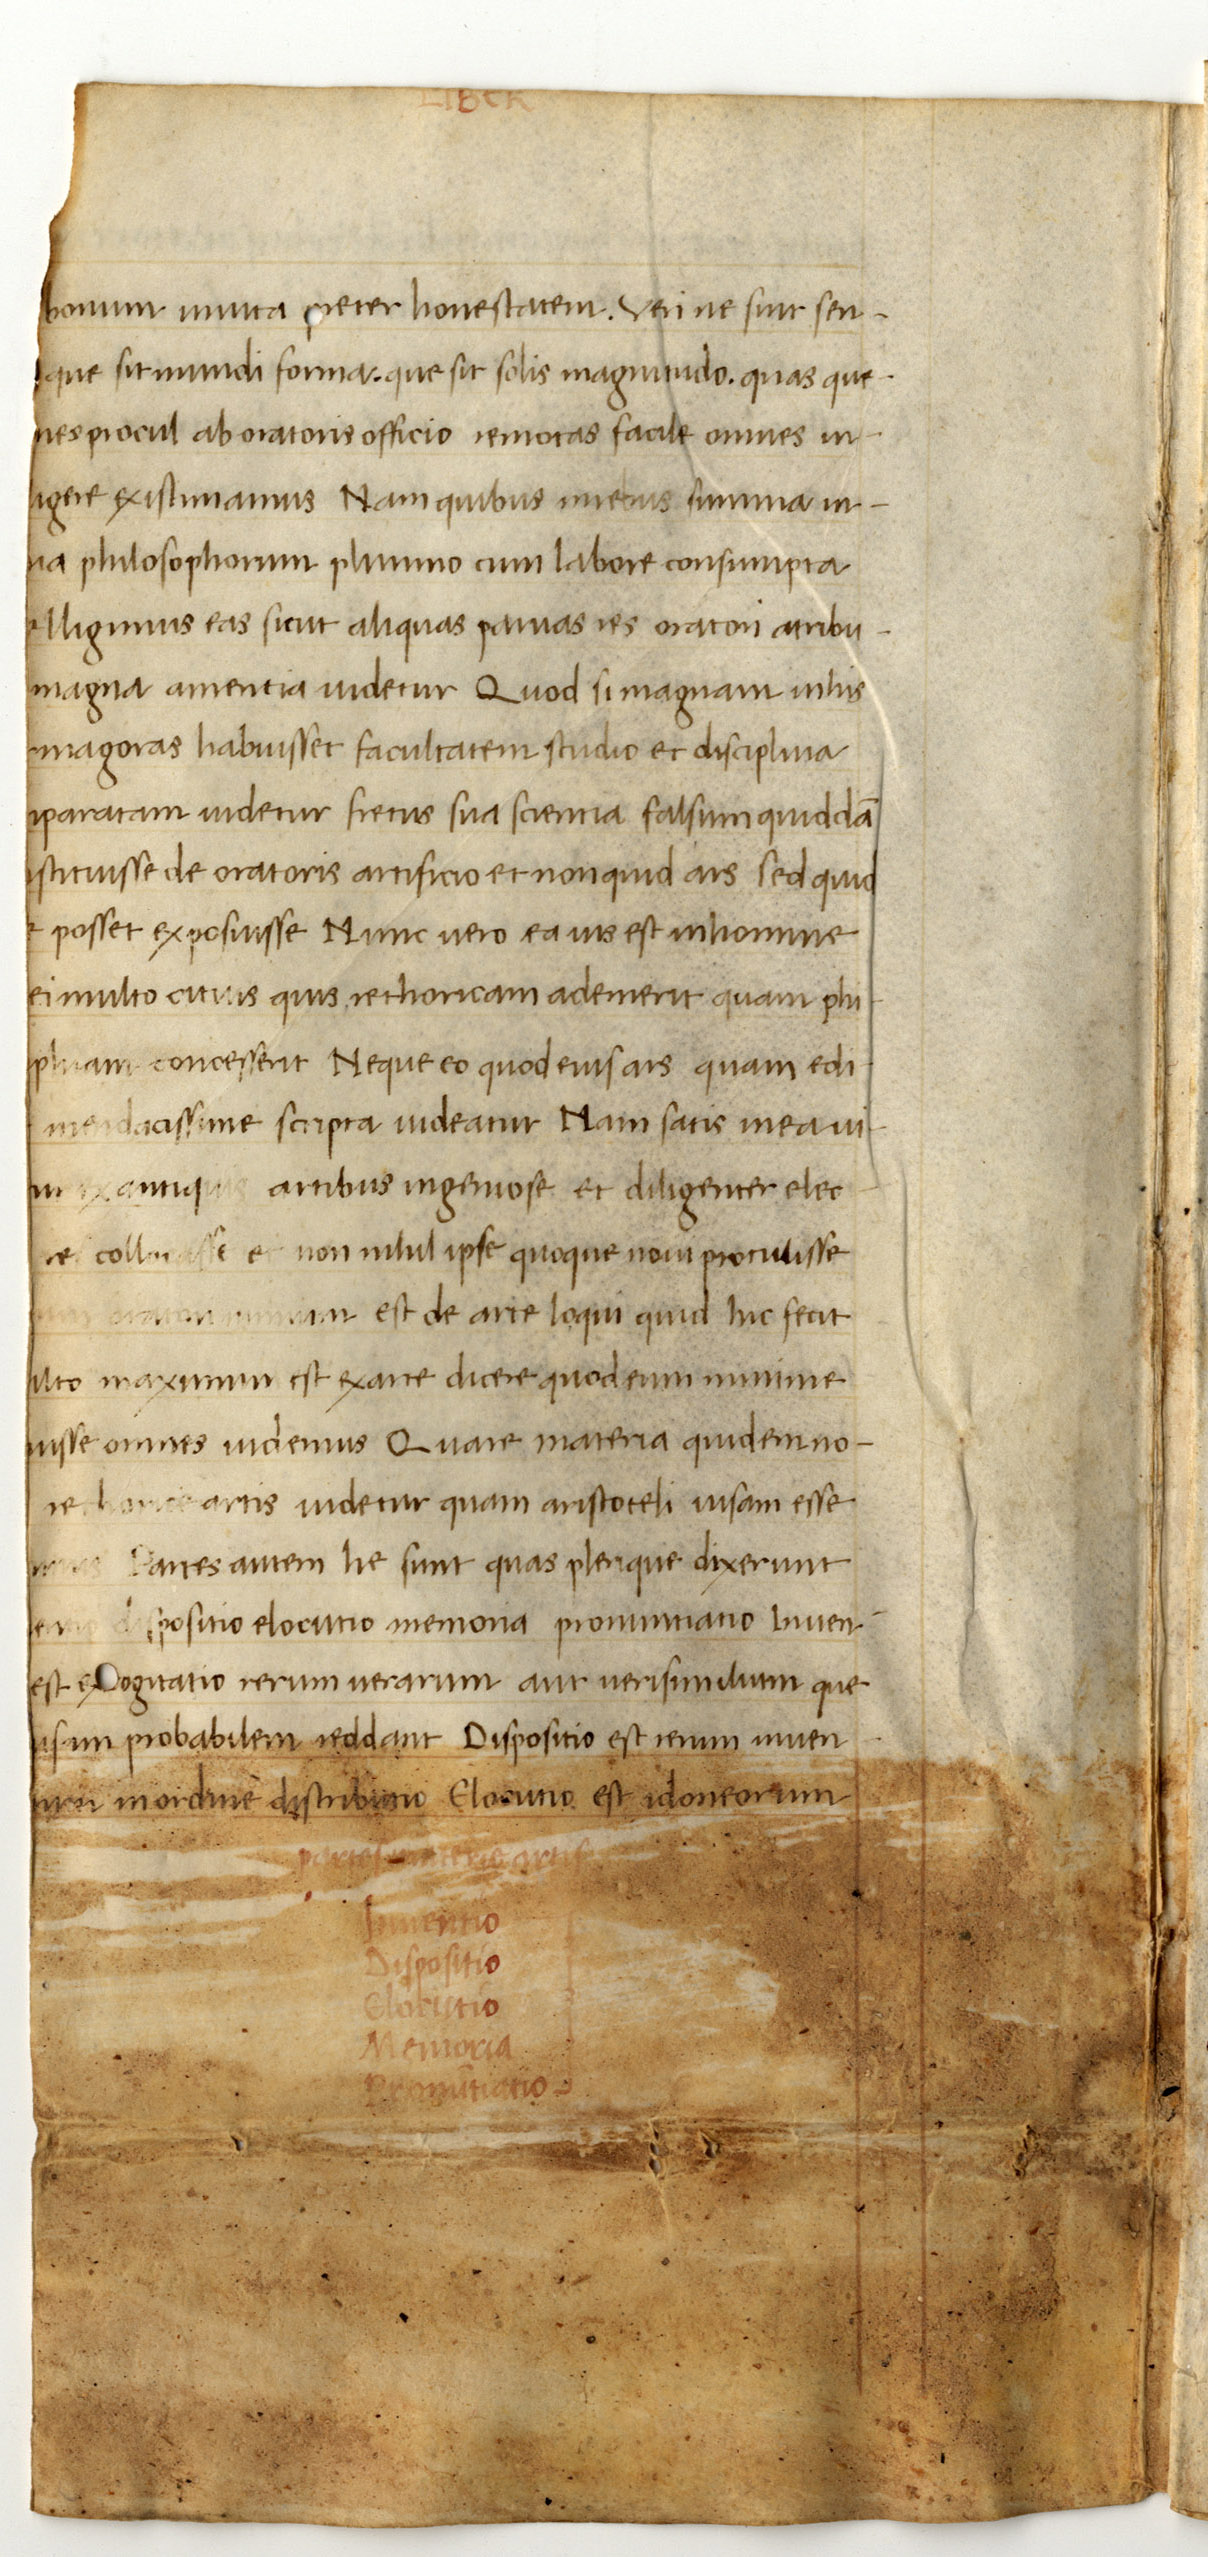 LIBER
bonum muta preter honestatem. Veri ne sint sen-
que sit mundi forma. que sit solis magnitudo. quas que-
nes procul ab oratoris officio remotas facile omnes in-
igere existimamus Nam quibus inrebus summa in-
ia philosophorum plurimo cum labore consumpta
elligimus eas sicut aliquas paruas res oratori atribu-
magna amentia uidetur Quod si magnam inhis
rmagoras habuisset facultatem studio et disciplina
mparatam uidetur fretus sua scientia falsum quiddā
nstituisse de oratoris artificio et non quid ars sed quid
e posset exposuisse Nunc uero ea uis est inhomine
ei multo citius quis rethoricam ademerit quam phi-
ophiam concesserit Neque eo quod eius ars quam edi-
mendacissime scripta uideatur Nam satis mea ui-
ur ex antiquis artibus ingeniose et diligenter elec-
res collocasse et non nihil ipse quoque noui protulisse
oratori minimum est de arte loqui quid hic fecit
ulto maximum est exarte dicere quod eum minime
uisse omnes uidemus Quare materia quidem no-
rethorice artis uidetur quam aristoteli uisam esse
Partes autem he sunt quas plerique dixerunt
entio dispositio elocutio memoria pronuntiatio Inuen-
est excogitatio rerum uerarum aut uerisimilium que
usam probabilem reddant Dispositio est rerum inuen-
inordine distributio Elocutio est idoneorum
partes materie artis
Inuentio
Dispositio
Elocutio
Memoria
Pronūtiatio